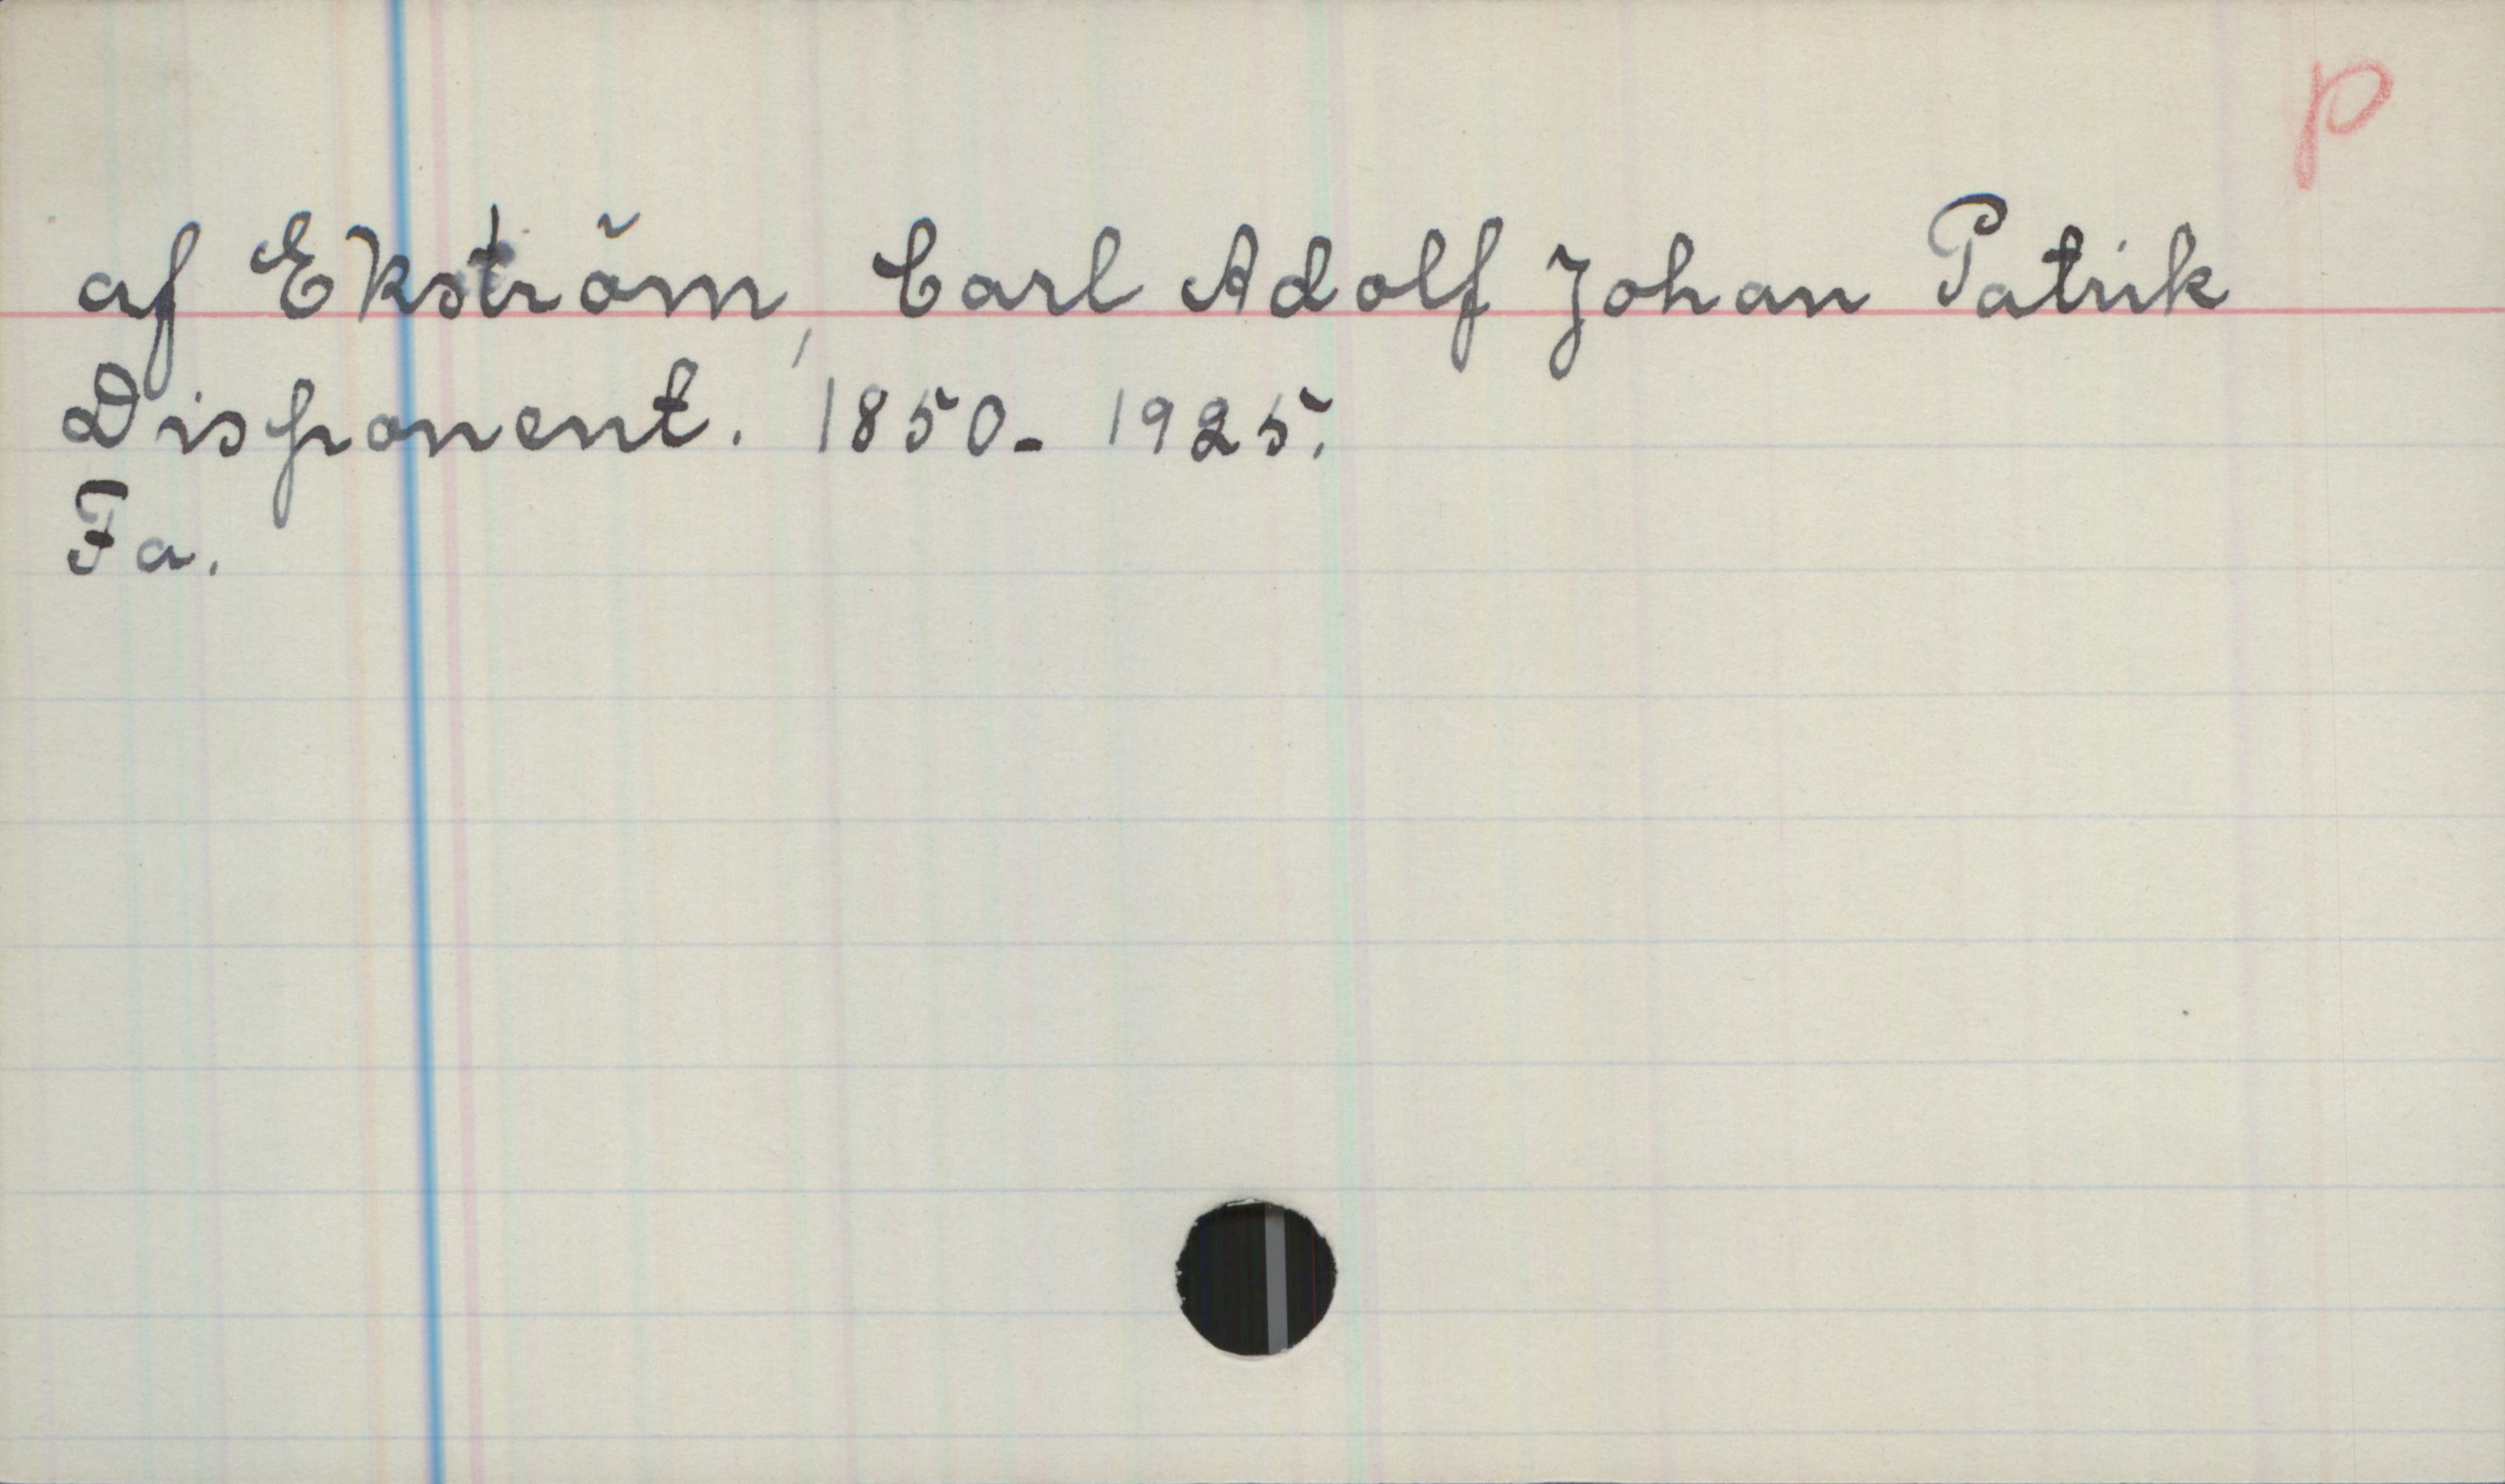 p
af Ekström, Carl Adolf Johan Patrik
Disponent. 1850-1925.
Fa.